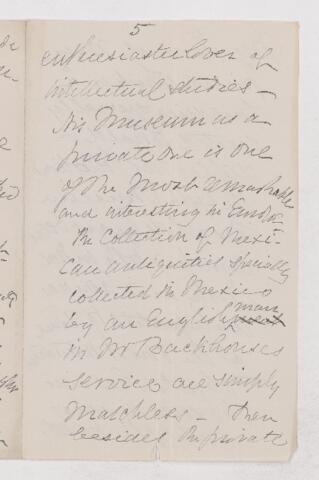 5
enthusiastic lover of
intellectual studies –
His Museum as a
private one is one
of the most remarkable
and interesting in
The Collection of Mexi-
can antiquities specially
collected in Mexico
by an English man
in Mr Backhouses
service are simply
matchless – Then
besides the private